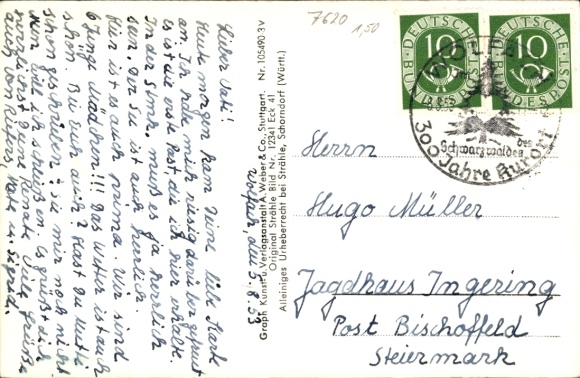 Wolfach am 5.8.53
Lieber Vati!
Heute morgen kam Deine liebe Karte
an. Ich habe mich riesig darüber gefreut
es ist die erste Post, die ich hier erhalte.
In der Semk. muß es ja herrlich
sein. Der See ist auch herrlich.
Hier ist es auch prima. Wir sind
6 Junge Mädchen!!! Das Wetter ist auch
schön. Bei Euch auch? Hast Du Mutti
schon geschrieben? Sei mir noch nicht
Nun will ich schließen. Es grüßt dich
recht herzlich Deine Renate. Viele Grüße
auch von
Graph Kunst- u. Verlagsanstalt A. Weber & Co., Stuttgart. Nr. 105490 3V
Original Strähle Bild Nr. 12341 Eck 41
Alleiniges Urheberrecht bei Strähle, Schorndorf (Württ.)
7620
1,50
DEUTSCHE BUNDESPOST
10
DEUTSCHE BUNDESPOST
10
des
Schwarzwaldes
300 Jahre Kurort
Herrn
Hugo Müller
Jagdhaus Ingering
Post Bischoffeld
Steiermark